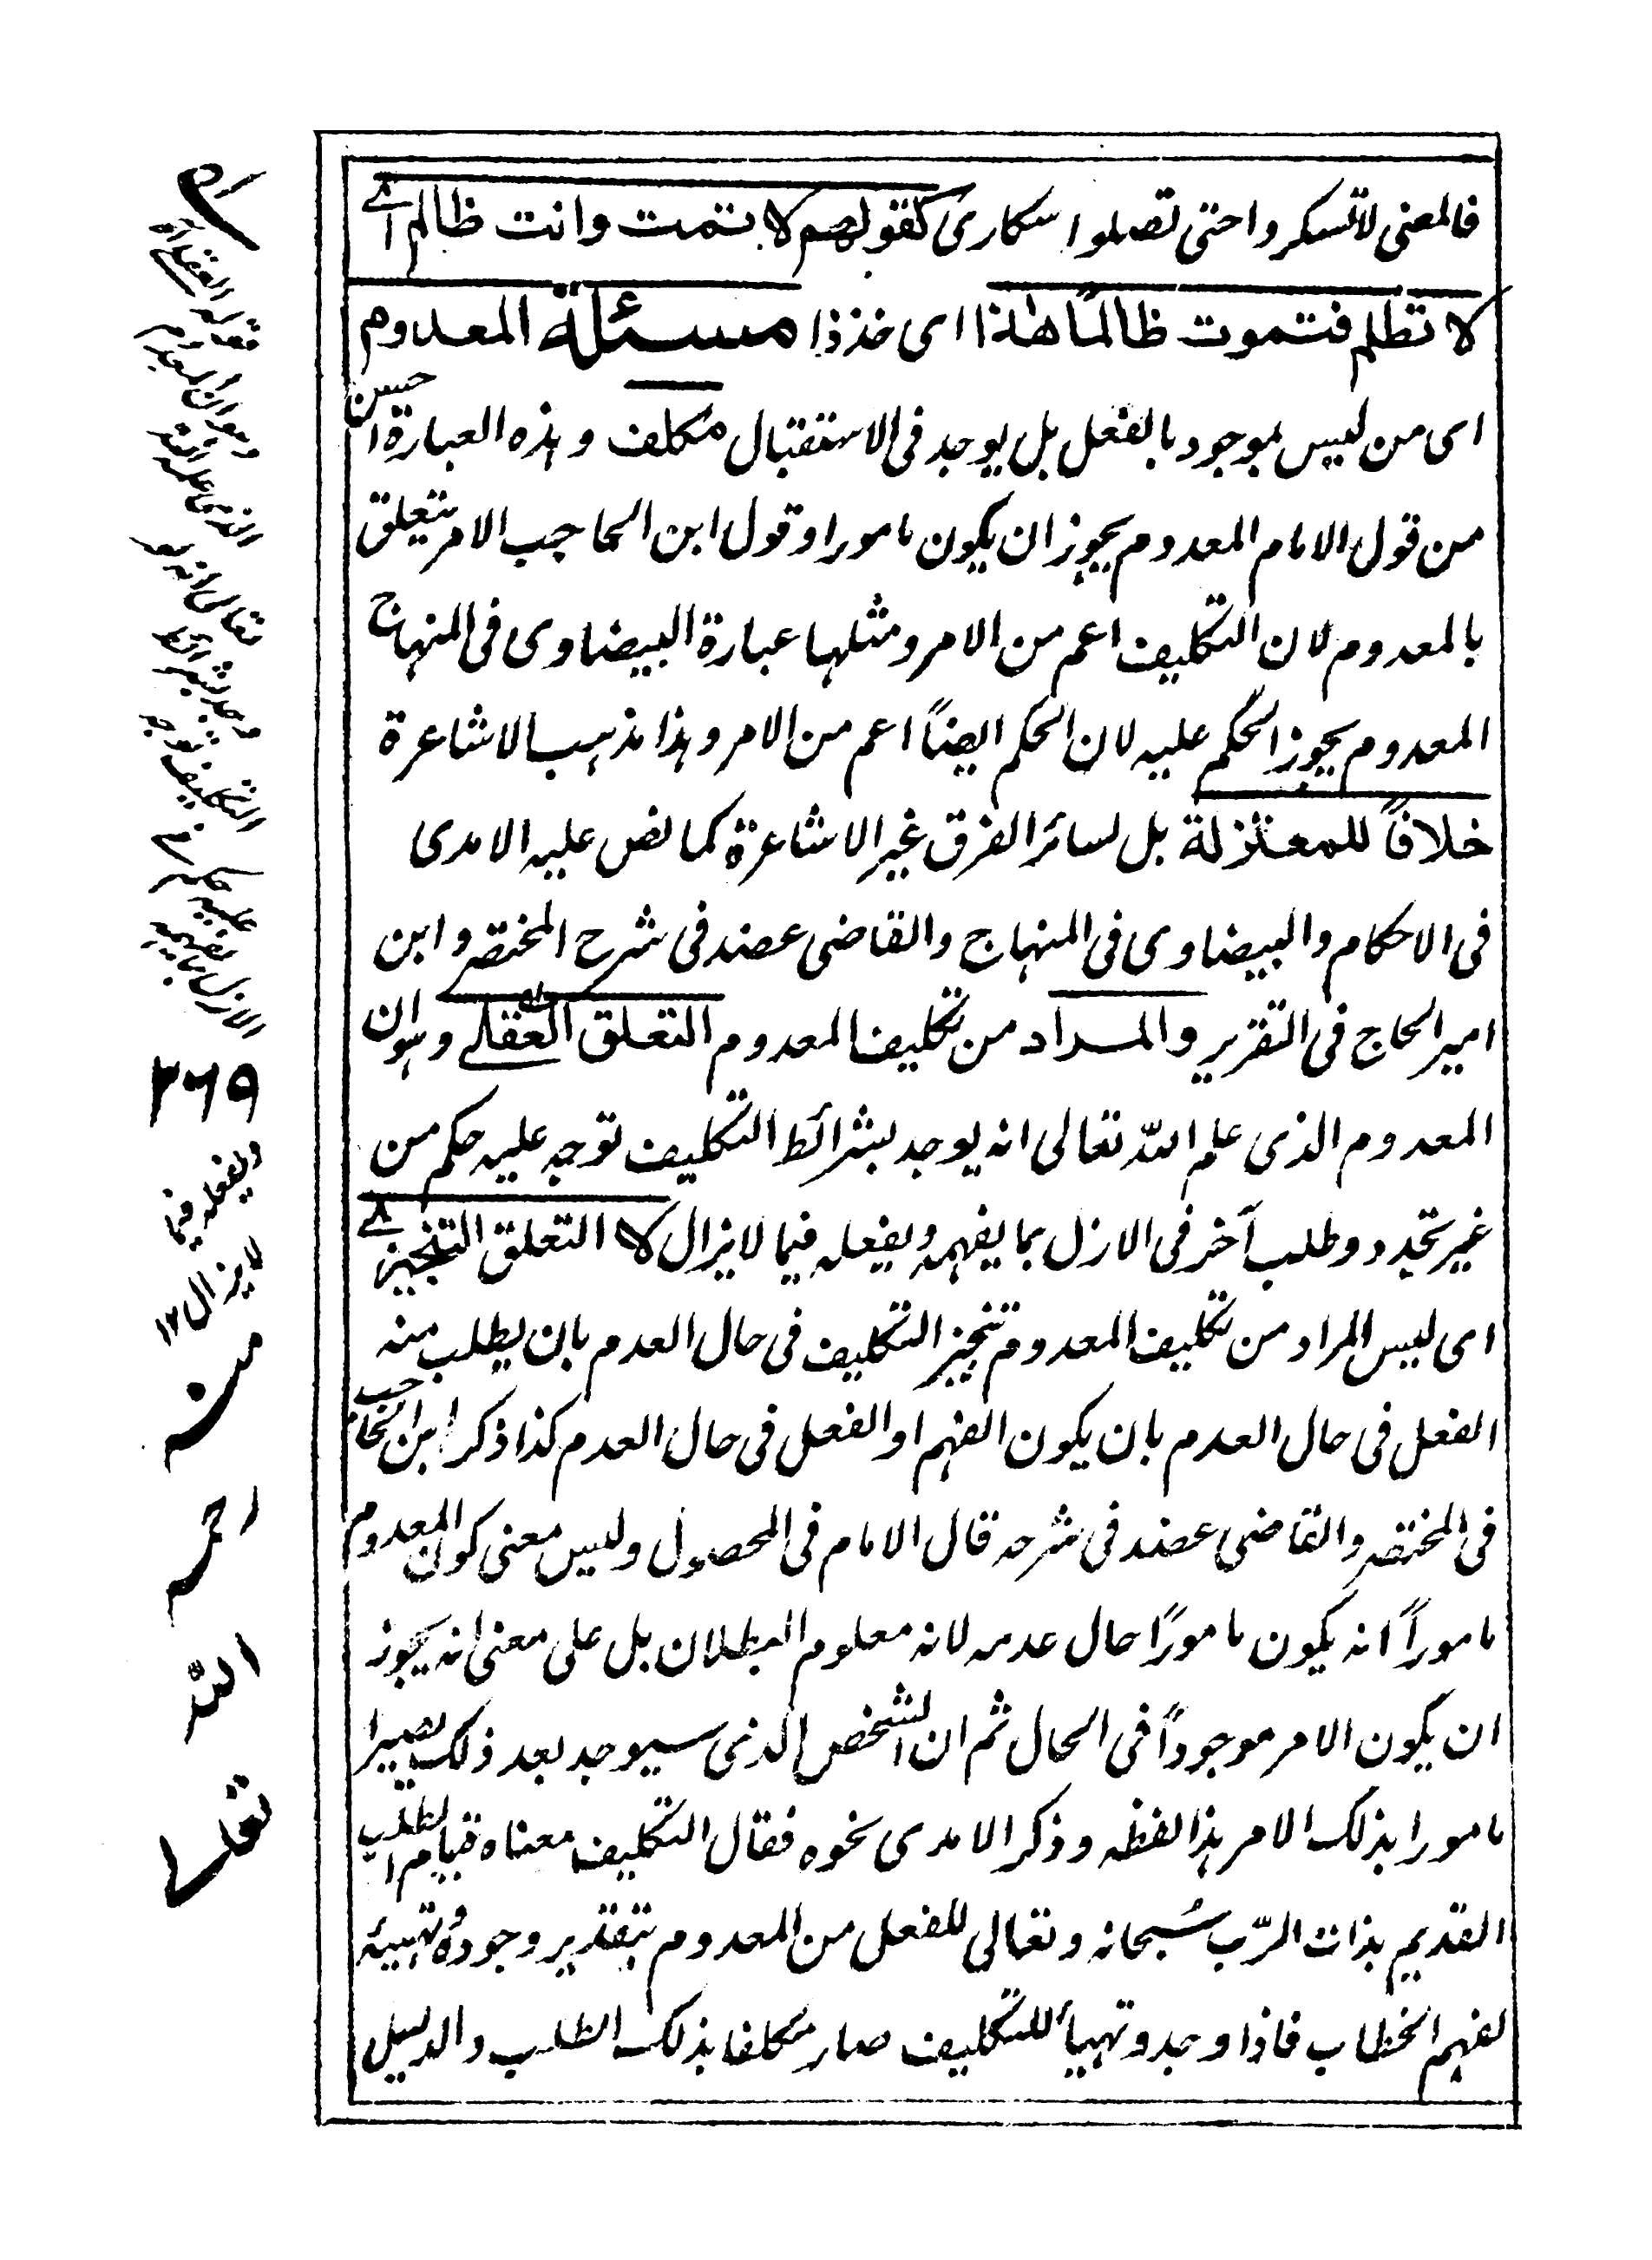 فالمعنى لا تسكروا حتى تصلوا سكارى كقولهم لا تمت وانت ظالم اے
لا تظلم فتموت ظالمًا هذا اى خذ ذا مسئلة المعدوم
اى من ليس بموجود بالفعل بل يوجد فى الاستقبال مكلف وهذه العبارة احسن
من قول الامام المعدوم يجوز ان يكون مامورا وقول ابن الحاجب الامر يتعلق
بالمعدوم لان التكليف اعم من الامر ومثلها عبارة البيضاوى فى المنهاج
المعدوم يجوز الحكم عليه لان الحكم ايضاً اعم من الامر وهذا مذهب الاشاعرة
خلافًا للمعتزلة بل لسائر الفرق غير الاشاعرة كما نص عليه الامدى
فى الاحكام والبيضاوى فى المنهاج والقاضى عضد فى شرح المختصر وابن
امير الحاج فى التقرير والمراد من تكليف المعدوم التعلق العقلے وهو ان
المعدوم الذى علم الله تعالى انه يوجد بشرائط التكليف توجه عليه حكم من
غير تجدد وطلب آخر فى الازل بما يفهمه ويفعله فيما لا يزال لا التعلق التنجيزے
اى ليس المراد من تكليف المعدوم تنجيز التكليف فى حال العدم بان يطلب منه
الفعل فى حال العدم بان يكون الفهم او الفعل فى حال العدم كذا ذكر ابن الحاجب
فى المختصر والقاضى عضد فى شرحه قال الامام فى المحصول وليس معنى كون المعدوم
ماموراً انه يكون مامورًا حال عدمه لانه معلوم البطلان بل على معنى انه يجوز
ان يكون الامر موجوداً فى الحال ثم ان الشخص الذى سيوجد بعد ذلك يصير
مامورا بذلك الامر هذا لفظه وذكر الامدى نحوه فقال التكليف معناه قيام الطلب
القديم بذات الرّب سُبحانه وتعالى للفعل من المعدوم بتقدير وجوده وتهيئه
لفهم الخطاب فاذا وجد وتهيأ للتكليف صار مكلفا بذلك الطلب والدليل
قوله العقلے اه
وهو ان المعدوم
الذى علم الله
تعالى انه يو
جد بشرائط
التكليف توجه
عليه حكم فى
الازل بما يفهمه
٣٦٩
ويفعله فيما
لا يزال ١٢
منه
رحمه
الله
تعالے